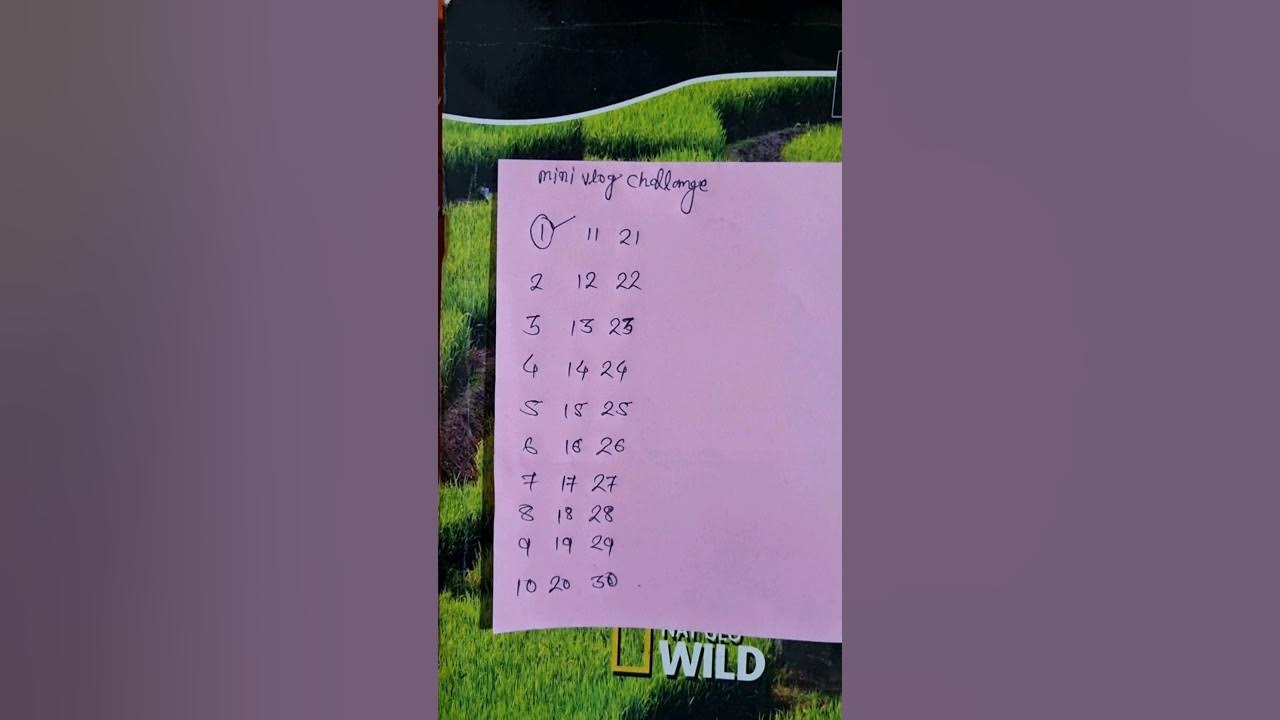 mini vlog challange
1 11 21
2 12 22
3 13 23
4 14 24
5 15 25
6 16 26
7 17 27
8 18 28
9 19 29
10 20 30
NAT GEO
WILD